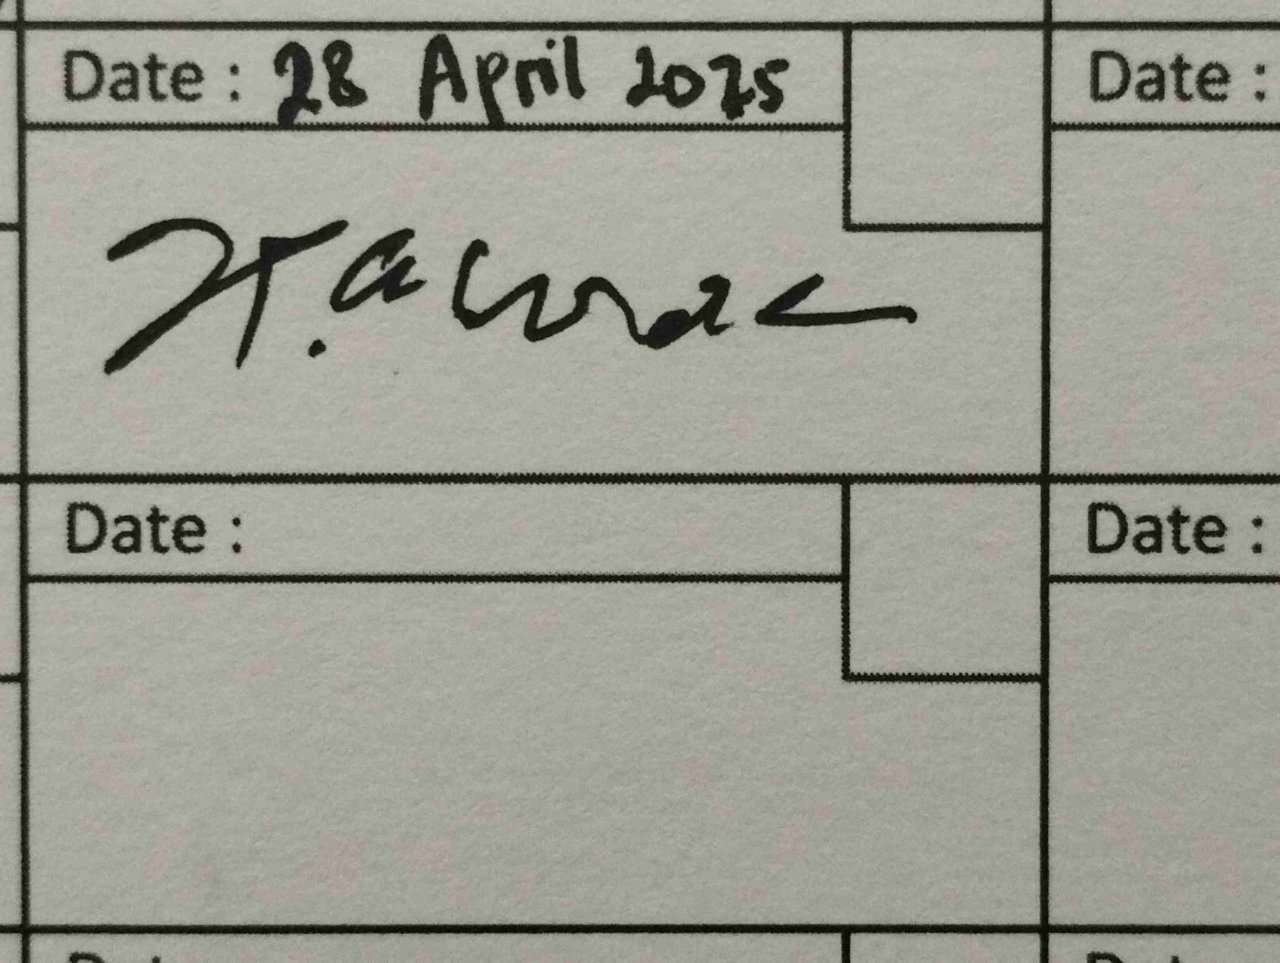 Date : 28 April 2025
Date :
Date :
Date :